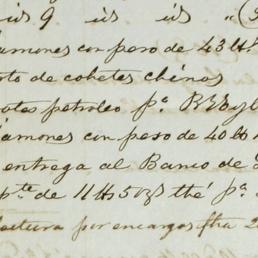 is 9 is is
jamones con peso de 43 lbs
to de cohetes chinos
otes petroleo pa.
jamones con peso de 40 lbs
entrega al Banco de
pte de 11 lbs 5 oz thé pa.
factura por encargos fha 2